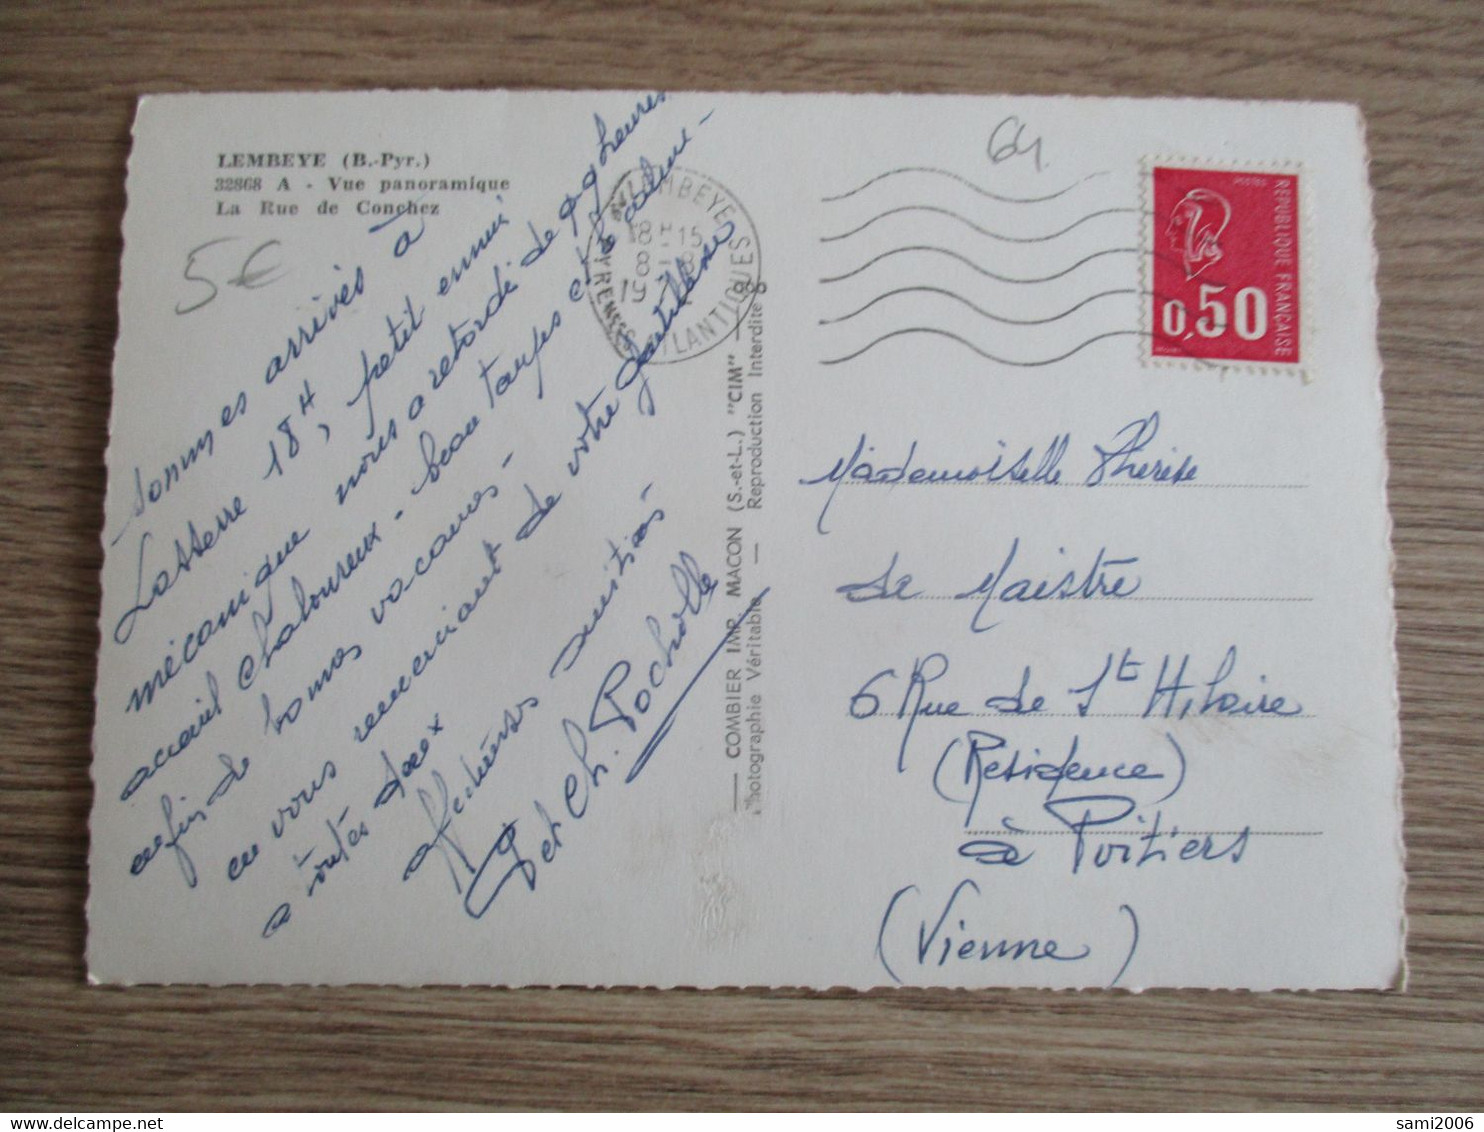 LEMBEYE (B.-Pyr.)
32868 A - Vue panoramique
La Rue de Conchez
5€
64
Sommes arrivés à
Lasserre 18H, petit ennui
mécanique nous a retardé de 2 heures
accueil chaloureux - beau temps et le calme -
enfin de bonnes vacances -
en vous remerciant de votre gentillesse
a toutes deux
Affectueuses amitiés -
et Ch. Rocholle
LEMBEYE
18H15
8 - 8
19
PYRENEES ATLANTIQUES
COMBIER IMP. MACON (S.-et-L.) "CIM"
Photographie Véritable — Reproduction Interdite
REPUBLIQUE FRANÇAISE
0,50
Mademoiselle Thérèse
de Maistre
6 Rue de St Hilaire
(Residence)
à Poitiers
(Vienne)
sami2006